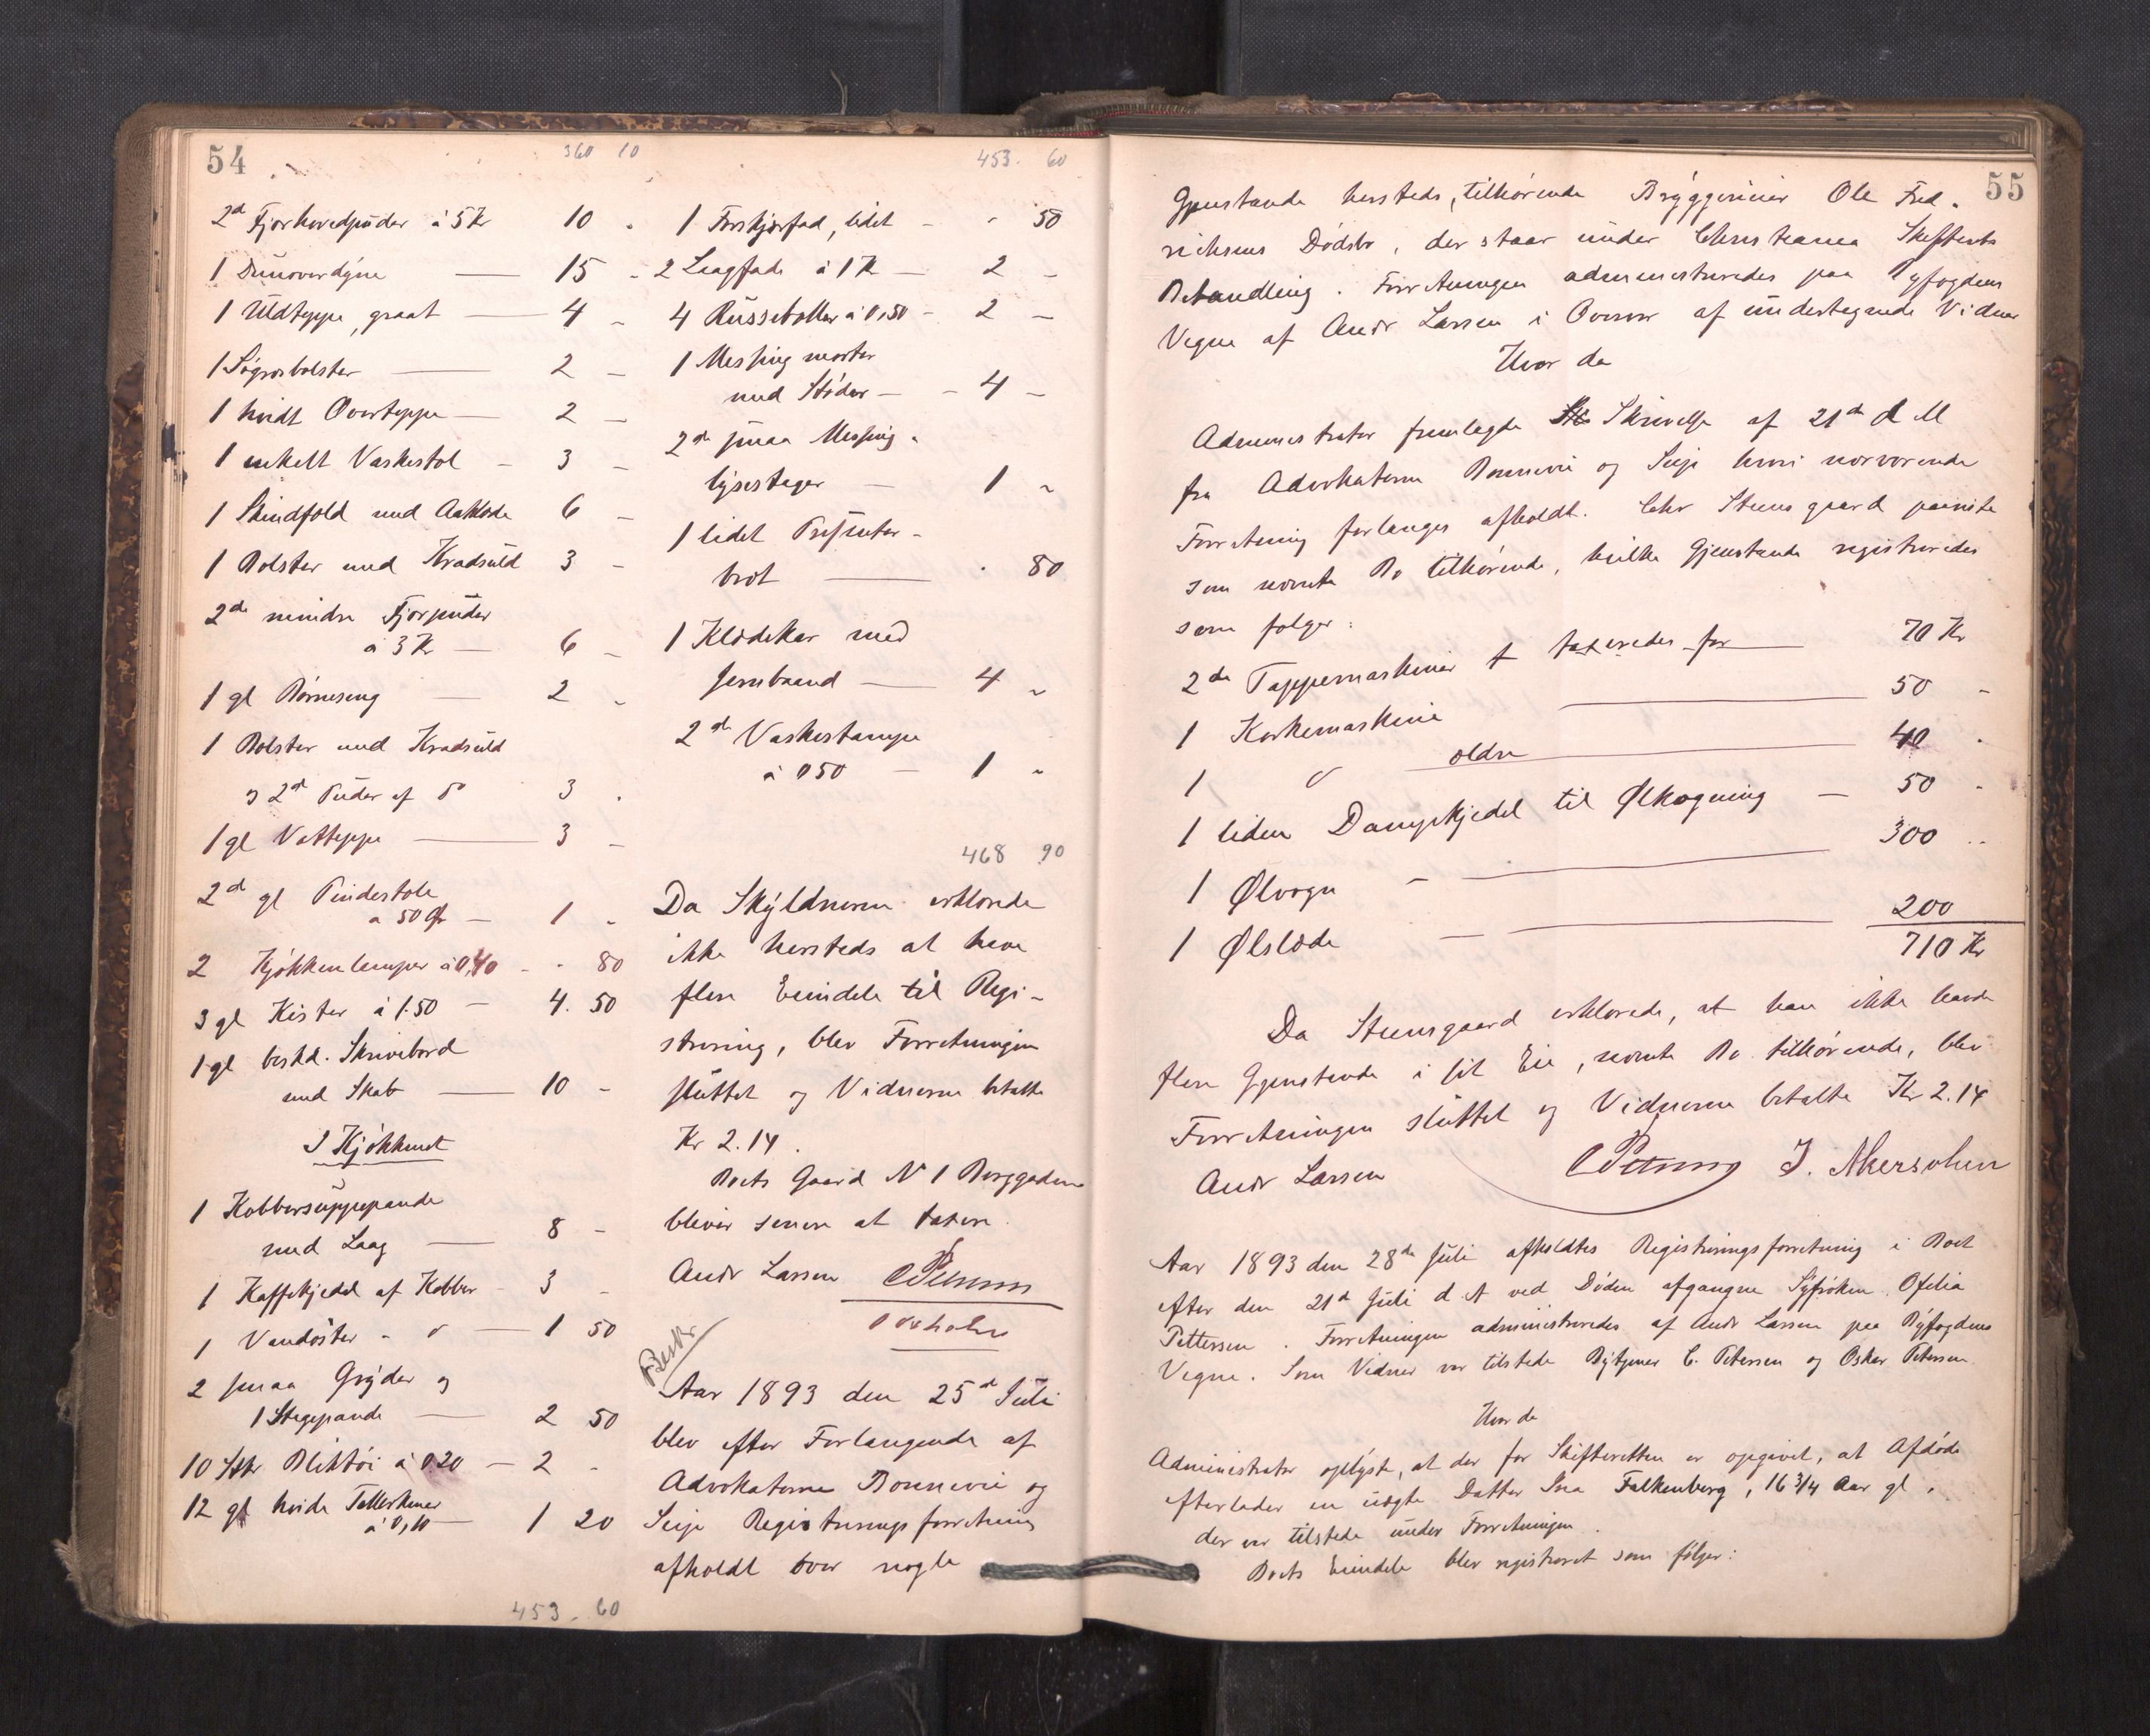 54
360 10
2d Fjærhovedpuder à 5 Kr 10 "
1 Dunoverdyne — 15 -
1 Uldteppe, graat — 4 -
1 Søgræsbolster — 2 -
1 hvidt Overteppe — 2 -
1 enkelt Vaskestol - 3 -
1 Skindfeld med Aaklæde 6 -
1 Bolster med Kradsuld 3 -
2de mindre Fjærpuder
à 3 Kr — 6 -
1 gl Børneseng — 2 -
1 Bolster med Kradsuld
& 2d Puder af do 3 .
1 gl Vatteppe — 3 -
2d gl Pindestole
a 50 Øre — 1 -
2 Kjøkkenlamper à 0,40 - " 80
3 gl Kister à 1.50 — 4. 50
1 gl beskd. Skrivebord
med Skab — 10 -
I Kjøkkenet
1 Kobbersuppepande
med Laag — 8 -
1 Kaffekjedel af Kobber - 3 -
1 Vandøster - do — 1 50
2 smaa Gryder og
1 Stegepande — 2 50
10 Stkr Bliktøi à 0.20 — 2 -
12 gl hvide Tallerkener
à 0,10 — 1 20
453 - 60
453. 60
1 Forskjærfad, lidet - " 50
2 Laagfade à 1 Kr — 2 -
4 Russeboller à 0,50 - 2 -
1 Messing morter
med Støder — - 4 -
2de smaa Messing-
lysestager — 1 "
1 lidet Presenter-
bret — " 80
1 Klædekar med
Jernbaand — 4 "
2de Vaskestampe
à 0 50 — 1 "
468 90
Da Skyldneren erklærede
ikke hersteds at have
flere Eiendele til Regi-
strering, blev Forretningen
sluttet og Vidnerne betalte
Kr 2.14.
Boets Gaard No 1 Berggaden
bliver senere at taxere.
Andr Larsen C Petersen
Beskr
Aar 1893 den 25de Juli
blev efter Forlangende af
Advokaterne Bonnevie og
Seip Registreringsforretning
afholdt over nogle
55
Gjenstande hersteds, tilhørende Bryggerieier Ole Fred-
riksens Dødsbo, der staar under Christiania Skifterets
Behandling. Forretningen administreredes paa Byfogdens
Vegne af Andr Larsen i Overvær af undertegnede Vidner
Hvor da
Administrator fremlagde Skrivelse af 21de d M
fra Advokaterne Bonnevie og Seip hvori nærværende
Forretning forlanges afholdt. Chr Steensgaard paaviste
som nævnte Bo tilhørende, hvilke Gjenstande registreredes
som følger:
2de Tappemaskiner taxeredes for — 70 Kr
1 Korkemaskine — 50 -
1 do ældre — 40 .
1 liden Dampkjedel til Ølkogning — 50 -
1 Ølvogn — 300 ..
1 Ølslæde — 200
710 Kr
Da Steensgaard erklærede, at han ikke havde
flere Gjenstande i sit Eie, nævnte Bo tilhørende, blev
Forretningen sluttet og Vidnerne betalte Kr 2.14
Andr Larsen C Petersen J. Akersohen
Aar 1893 den 28de Juli afholdtes Registreringsforretning i Boet
efter den 21de Juli d. A ved Døden afgangne Syfrøken Ofelia
Pettersen. Forretningen administreredes af Andr Larsen paa Byfogdens
Vegne. Som Vidner var tilstede Bytjener C. Petersen og Oskar Petersen
Hvor da
Administrator oplyste, at der for Skifteretten er opgivet, at Afdøde
efterlader en uægte Datter Ina Falkenberg, 16 3/4 Aar gl,
der var tilstede under Forretningen.
Boets Eiendele blev registreret som følger: